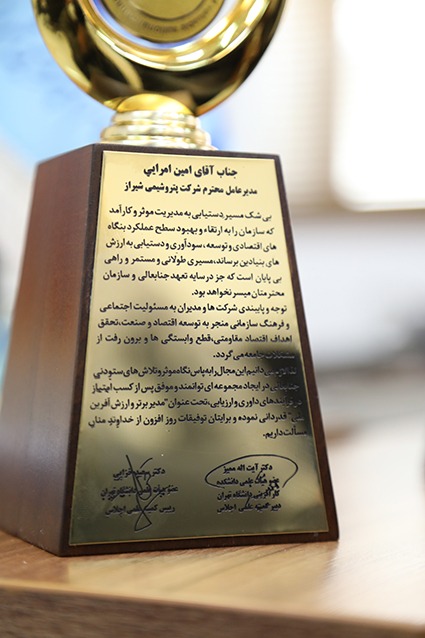 جناب آقای امین امرایی
مدیرعامل محترم شرکت پتروشیمی شیراز
بی شک مسیر دستیابی به مدیریت موثر و کارآمد
که سازمان را به ارتقاء و بهبود سطح عملکرد بنگاه
های اقتصادی و توسعه ، سودآوری و دستیابی به ارزش
های بنیادین برساند، مسیری طولانی و مستمر و راهی
بی پایان است که جز در سایه تعهد جنابعالی و سازمان
محترمتان میسر نخواهد بود.
توجه و پایبندی شرکت ها و مدیران به مسئولیت اجتماعی
و فرهنگ سازمانی منجر به توسعه اقتصاد و صنعت، تحقق
اهداف اقتصاد مقاومتی، قطع وابستگی ها و برون رفت از
مشکلات جامعه می گردد.
لذا لازم می دانیم این مجال را به پاس نگاه موثر و تلاش های ستودنی
جنابعالی در ایجاد مجموعه ای توانمند و موفق پس از کسب امتیاز
در فرآیندهای داوری و ارزیابی، تحت عنوان "مدیر برتر و ارزش آفرین
ملی" قدردانی نموده و برایتان توفیقات روز افزون از خداوند منان
مسألت داریم.
دکتر آیت اله ممیز
عضو هیأت علمی دانشکده
کارآفرینی دانشگاه تهران
دبیر کمیته علمی اجلاس
دکتر
عضو هیأت علمی دانشگاه تهران
رییس کمیته علمی اجلاس